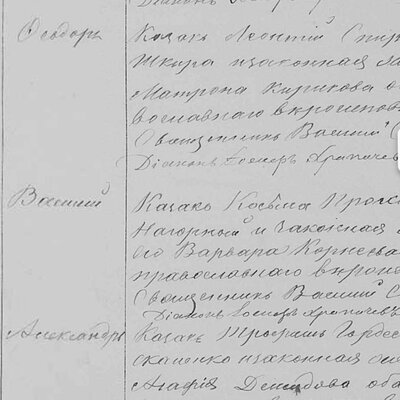 Діаконъ
Ѳеодоръ
Казакъ Леонтій Спир
Шкура и законная
Матрона Кирикова
вославнаго вероиспов
Священникъ Василій
Діаконъ Іосифъ Храпачев
Василій
Казакъ Косьма Прок
Нагорный и законная
его Варвара Корнеева
православнаго
Священникъ Василій С
Діаконъ Іосифъ Храпачевъ
Александръ
Казакъ Трофимъ Гордее
скаленко и законная
Агафія Демидова оба